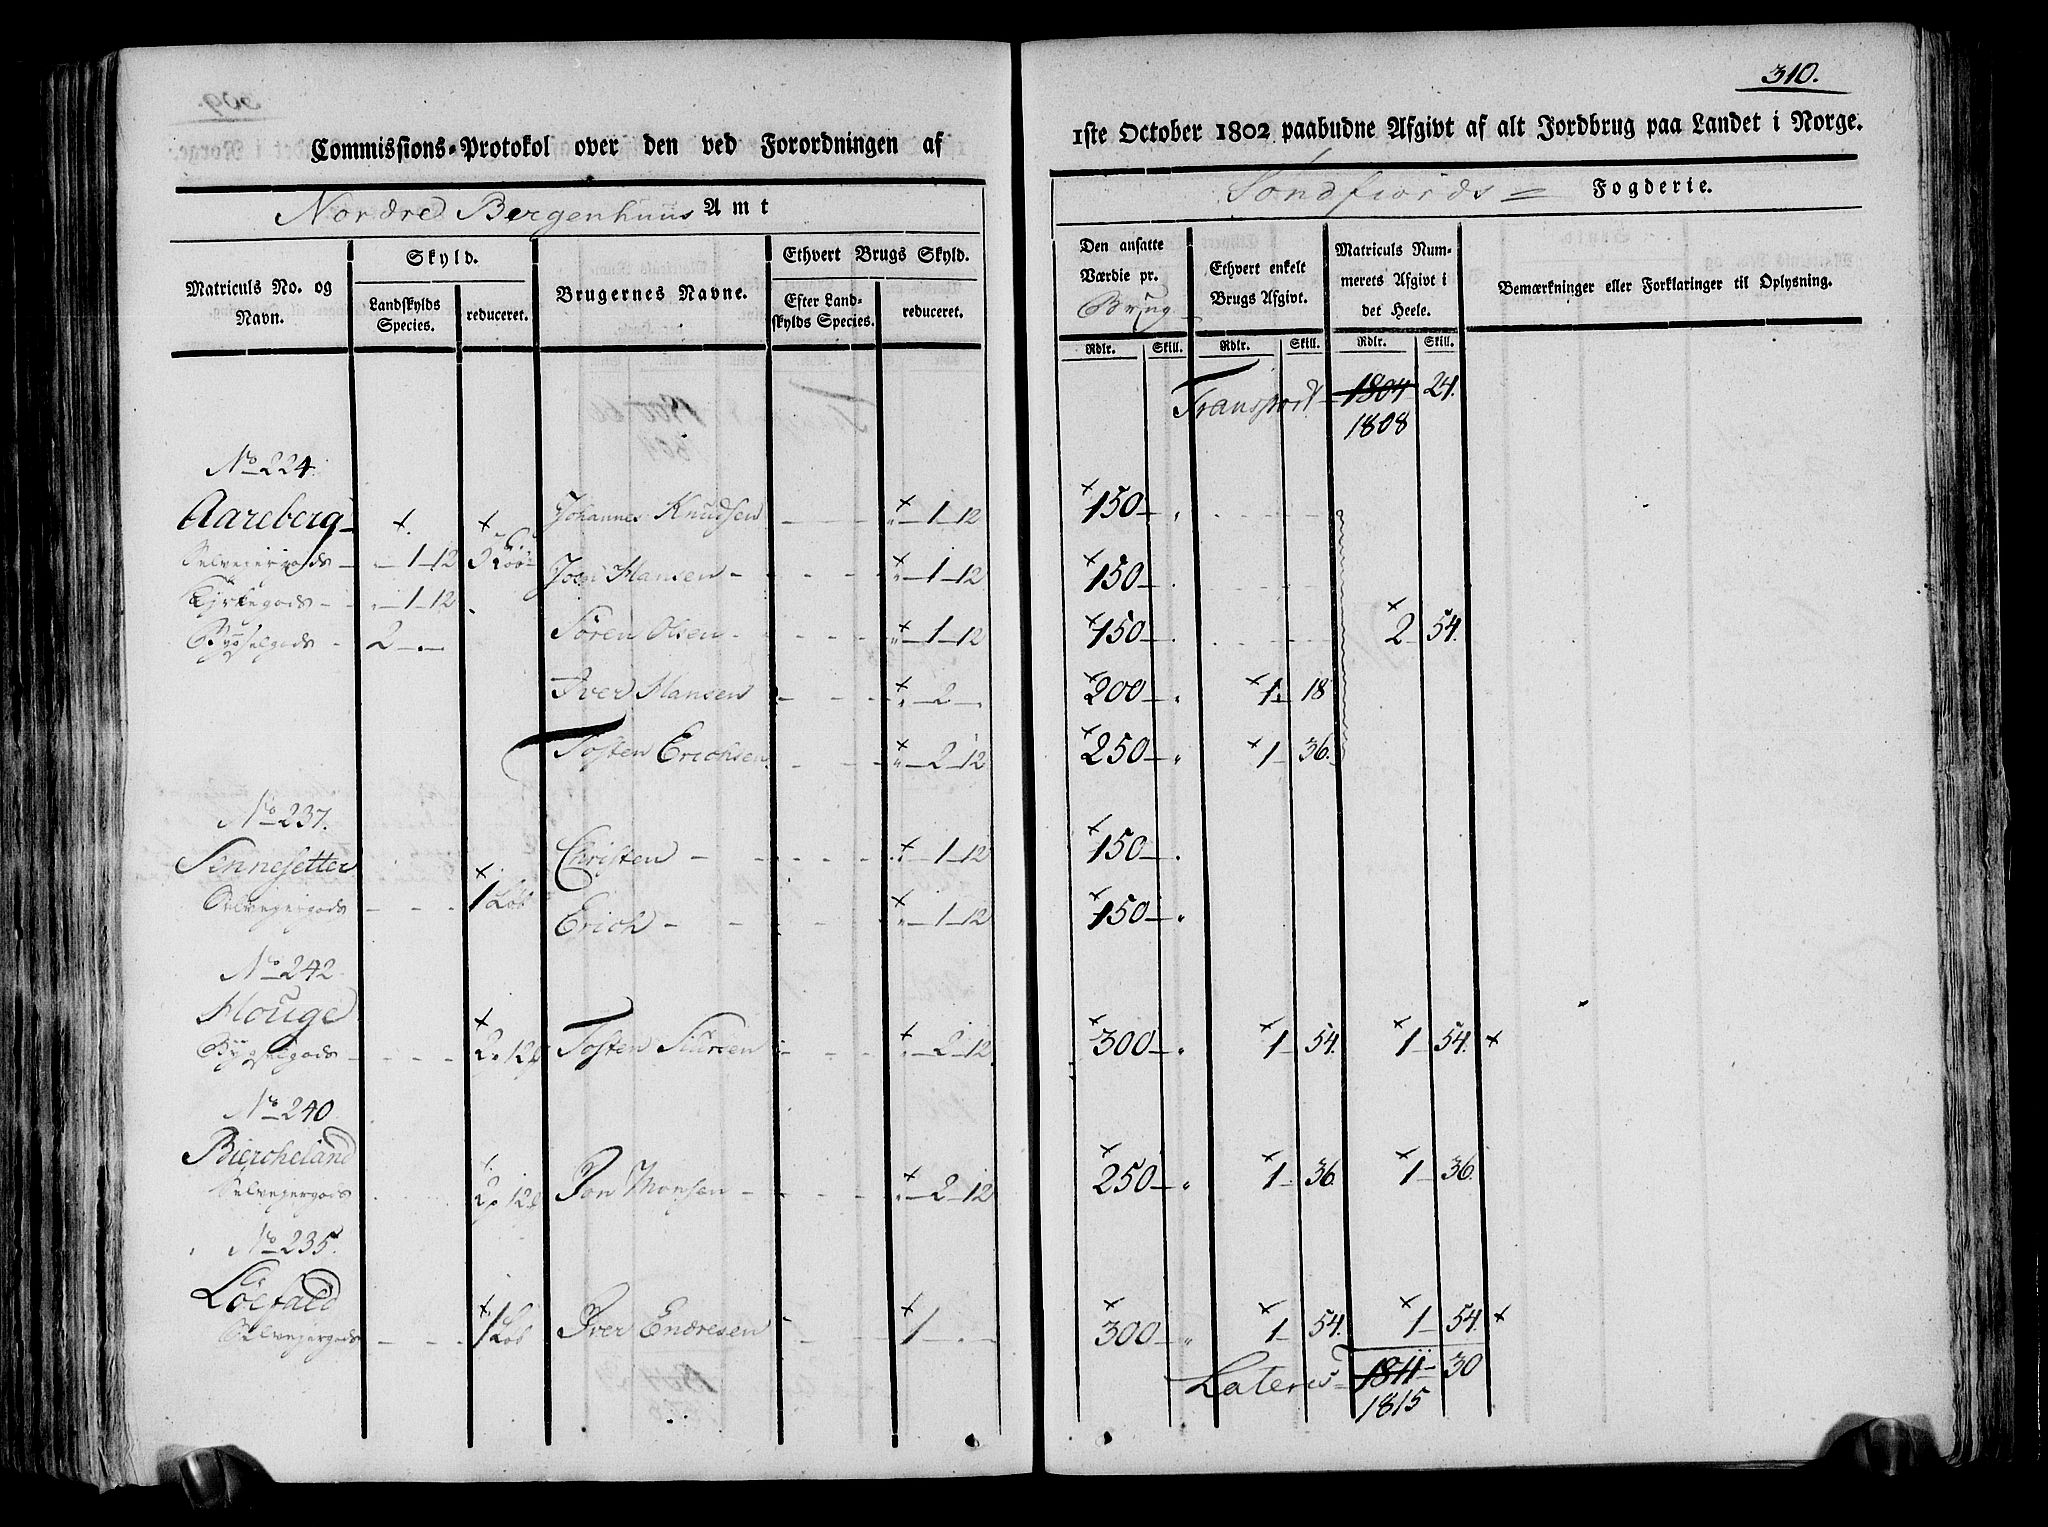 310.
Commissions-Protokol over den ved Forordningen af 1ste October 1802 paabudne Afgivt af alt Jordbrug paa Landet i Norge.
Nordre Bergenhuus Amt
Söndfiords Fogderie.
Matriculs No. og Navn.
Skyld.
Landskylds Species.
reduceret.
Brugernes Navne.
Ethvert Brugs Skyld.
Efter Landskylds Species.
reduceret.
Den ansatte Værdie pr. Brug
Ethvert enkelt Brugs Afgivt.
Matriculs Nummerets Afgivt i det Heele.
Bemærkninger eller Forklaringer til Oplysning.
Rdlr. Skill. Rdlr. Skill. Rdlr. Skill.
Transport 1804 24.
1808
No 224.
Aareberg Johannes Knudsen 1 12 150
Selveiergods 1 12 Joen Hansen 1 12 150
Kirkegods 1 12
Bygselgods 2 Sören Olsen 1 12 150 2 54.
Iver Hansen 2 200 1 18
Tosten Erichsen 2 12 250 1 36.
No 237.
Sennesetter Christen 1 12 150
Selveyergods 1 Löb Erich 1 12 150
No 242
Houge
Bygselgods 2 12 Tosten Siursen 2 12 300 1 54. 1 54.
No 240
Biercheland
Selveyergods 2 12 Jon Monsen 2 12 250 1 36 1 36.
No 235.
Löefald
Selveyergods 1 Löb Iver Endresen 1 300 1 54. 1 54.
Lateris 1811 30
1815